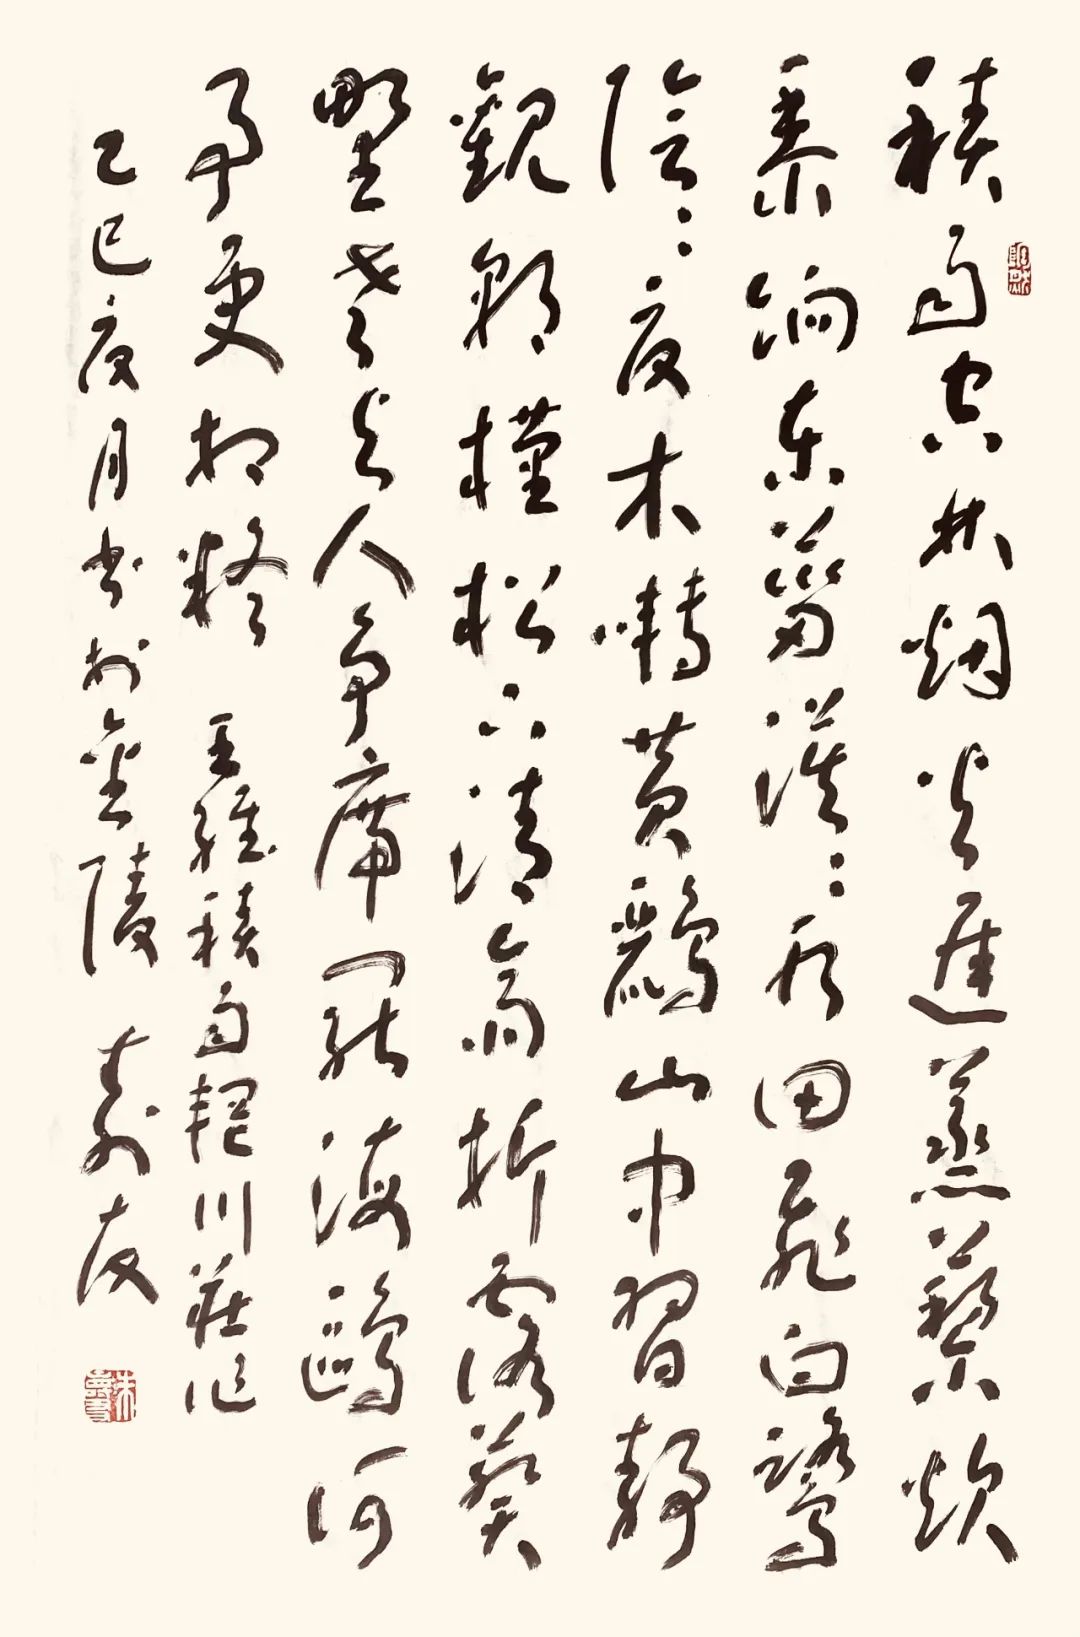 積雨空林烟火遲蒸藜炊
黍餉東菑漠漠水田飛白鷺
陰陰夏木囀黃鸝山中習靜
觀朝槿松下清齋折露葵
野老與人爭席罷海鷗何
事更相疑 王維積雨輞川莊作
乙巳夏月書於金陵 壽友